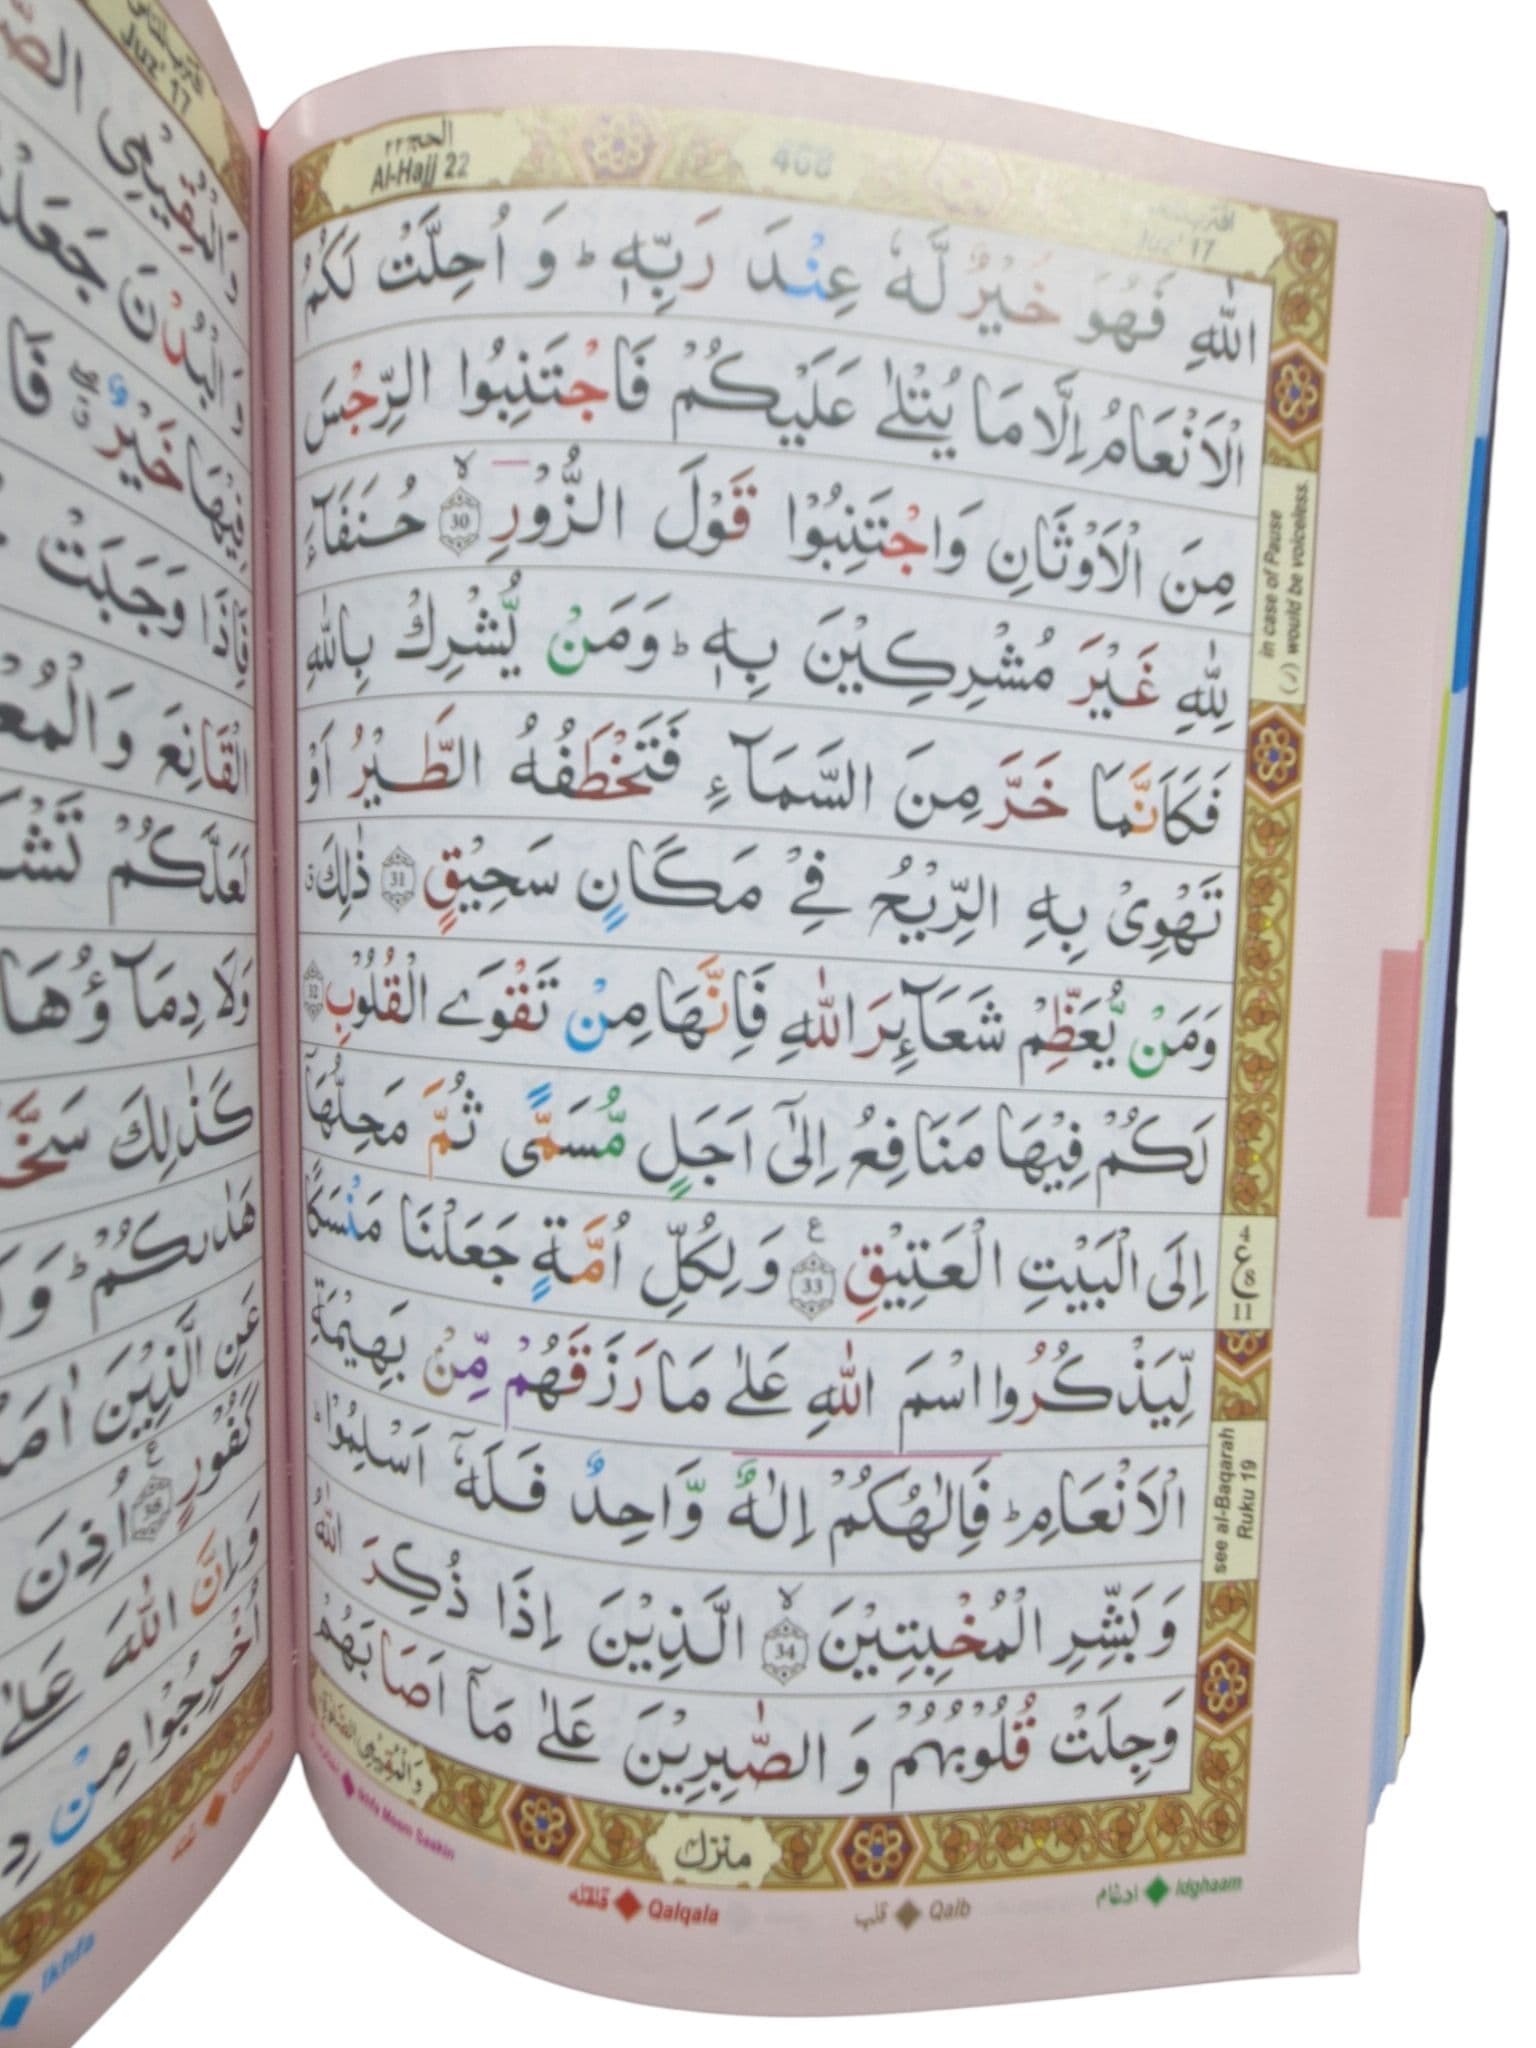 الحج ٢٢
Al-Hajj 22
468
Juz' 17
اللّٰهِ فَهُوَ خَيْرٌ لَّهٗ عِنْدَ رَبِّهٖ ؕ وَ اُحِلَّتْ لَكُمُ
الْاَنْعَامُ اِلَّا مَا يُتْلٰى عَلَيْكُمْ فَاجْتَنِبُوا الرِّجْسَ
مِنَ الْاَوْثَانِ وَاجْتَنِبُوْا قَوْلَ الزُّوْرِ ۙ 30 حُنَفَآءَ
لِلّٰهِ غَيْرَ مُشْرِكِيْنَ بِهٖ ؕ وَمَنْ يُّشْرِكْ بِاللّٰهِ
فَكَاَنَّمَا خَرَّ مِنَ السَّمَآءِ فَتَخْطَفُهُ الطَّيْرُ اَوْ
تَهْوِىْ بِهِ الرِّيْحُ فِىْ مَكَانٍ سَحِيْقٍ 31 ذٰلِكَ ۗ
وَمَنْ يُّعَظِّمْ شَعَآئِرَ اللّٰهِ فَاِنَّهَا مِنْ تَقْوَى الْقُلُوْبِ 32
لَكُمْ فِيْهَا مَنَافِعُ اِلٰٓى اَجَلٍ مُّسَمًّى ثُمَّ مَحِلُّهَآ
اِلَى الْبَيْتِ الْعَتِيْقِ ع 33 وَلِكُلِّ اُمَّةٍ جَعَلْنَا مَنْسَكًا
لِّيَذْكُرُوا اسْمَ اللّٰهِ عَلٰى مَا رَزَقَهُمْ مِّنْ بَهِيْمَةِ
الْاَنْعَامِ ؕ فَاِلٰهُكُمْ اِلٰهٌ وَّاحِدٌ فَلَهٗٓ اَسْلِمُوْا ؕ
وَبَشِّرِ الْمُخْبِتِيْنَ ۙ 34 الَّذِيْنَ اِذَا ذُكِرَ اللّٰهُ
وَجِلَتْ قُلُوْبُهُمْ وَ الصّٰبِرِيْنَ عَلٰى مَآ اَصَابَهُمْ
وَالْمُقِيْمِى الصَّلٰوةِ
in case of Pause
would be voiceless.
4
ع
8
11
see al-Baqarah
Ruku 19
منزل
Ikhfa Meem Saakin
قلقله Qalqala
قلب Qalb
ادغام Idghaam
Juz' 17
وَالْمُقِيْمِى
وَالْبُدْنَ
فِيْهَا خَيْرٌ
فَاِذَا وَجَبَتْ
الْقَانِعَ وَالْمُعْ
لَعَلَّكُمْ تَشْ
وَلَا دِمَآؤُهَا
كَذٰلِكَ سَخَّ
هَدٰىكُمْ ؕ وَ
عَنِ الَّذِيْنَ اٰمَ
كَفُوْرٍ ع 38 اُذِنَ
وَاِنَّ اللّٰهَ عَلٰى
اُخْرِجُوْا مِنْ دِ
Ikhfa